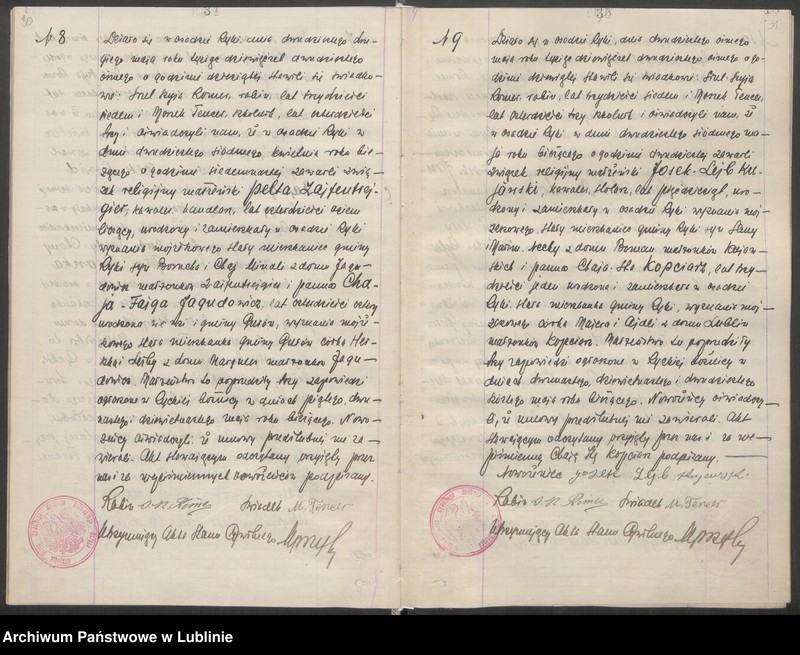 30
31
N 8
Działo się w osadzie Ryki, dnia dwudziestego dru-
giego maja roku tysiąc dziewięćset dwudziestego
ósmego o godzinie dziesiątej stawili się świadko-
wie: Srul Kuja Romer, rabin, lat trzydzieści
siedem i Moszek Tencer, szkolnik, lat czterdzieści
trzy i oświadczyli nam, iż w osadzie Ryki w
dniu dwudziestego siódmego kwietnia roku bie-
żącego o godzinie siedemnastej zawarli zwią-
zek religijny małżeński
kawaler, handlarz, lat czterdzieści osiem
liczący, urodzony i zamieszkały w osadzie Ryki
wyznania mojżeszowego stały mieszkaniec gminy
Ryki syn Boracha i Chaj Mindli z domu Jagu-
dowicz małżonków i panna Cha-
ja-Fajga Jagudowicz, lat czterdzieści cztery
urodzona we wsi i gminy Gusów, wyznania mojż-
szowego stała mieszkanka gminy Gusów córka Her-
szka i Lejby z domu Margules małżonków Jagu-
dowicz. Małżeństwo to poprzedziły trzy zapowiedzi
ogłoszone w Ryckiej bóżnicy w dniach piątego, dwu-
nastego i dziewiętnastego maja roku bieżącego. Nowo-
żeńcy oświadczyli, iż umowy przedślubnej nie za-
wierali. Akt stawającym odczytany przyjęty przez
nas i ze wyżmienionych podpisany.
Rabin Świadek M. Tencer
Utrzymujący Akta Stanu Cywilnego
35
31
N 9
Działo się w osadzie Ryki, dnia dwudziestego ósmego
maja roku tysiąc dziewięćset dwudziestego ósmego o go-
dzinie dziewiątej stawili się świadkowie: Srul Kuja
Romer, rabin, lat trzydzieści siedem i Moszek Tencer,
lat czterdzieści trzy szkolnik i oświadczyli nam, iż
w osadzie Ryki w dniu dwudziestego siódmego ma-
ja roku bieżącego o godzinie dwudziestej zawarli
związek religijny małżeński Josek-Lejb Ku-
jawski, kawaler, stolarz, lat pięćdziesiąt, uro-
dzony i zamieszkały w osadzie Ryki wyznania moj-
żeszowego stały mieszkaniec gminy Ryki syn
z domu małżonków Kujaw-
skich i panna Chaja-Ita Kopciarz, lat trzy-
dzieści jeden urodzona i zamieszkała w osadzie
Ryki, stała mieszkanka gminy Ryki, wyznania moj-
żeszowego córka Majera i Ajdli z domu Lublin
małżonków Kopciarz. Małżeństwo to poprzedziły
trzy zapowiedzi ogłoszone w Ryckiej bóżnicy w
dniach dwunastego, dziewiętnastego i dwudziestego
szóstego maja roku bieżącego. Nowożeńcy oświadczy-
li, iż umowy przedślubnej nie zawierali. Akt
stawającym odczytany przyjęty przez nas i za nie-
piśmienną Chają Itą Kopciarz podpisany.
Nowożeniec Josek Lejb Kujawski
Rabin Świadek M. Tencer
Utrzymujący Akta Stanu Cywilnego
Archiwum Państwowe w Lublinie